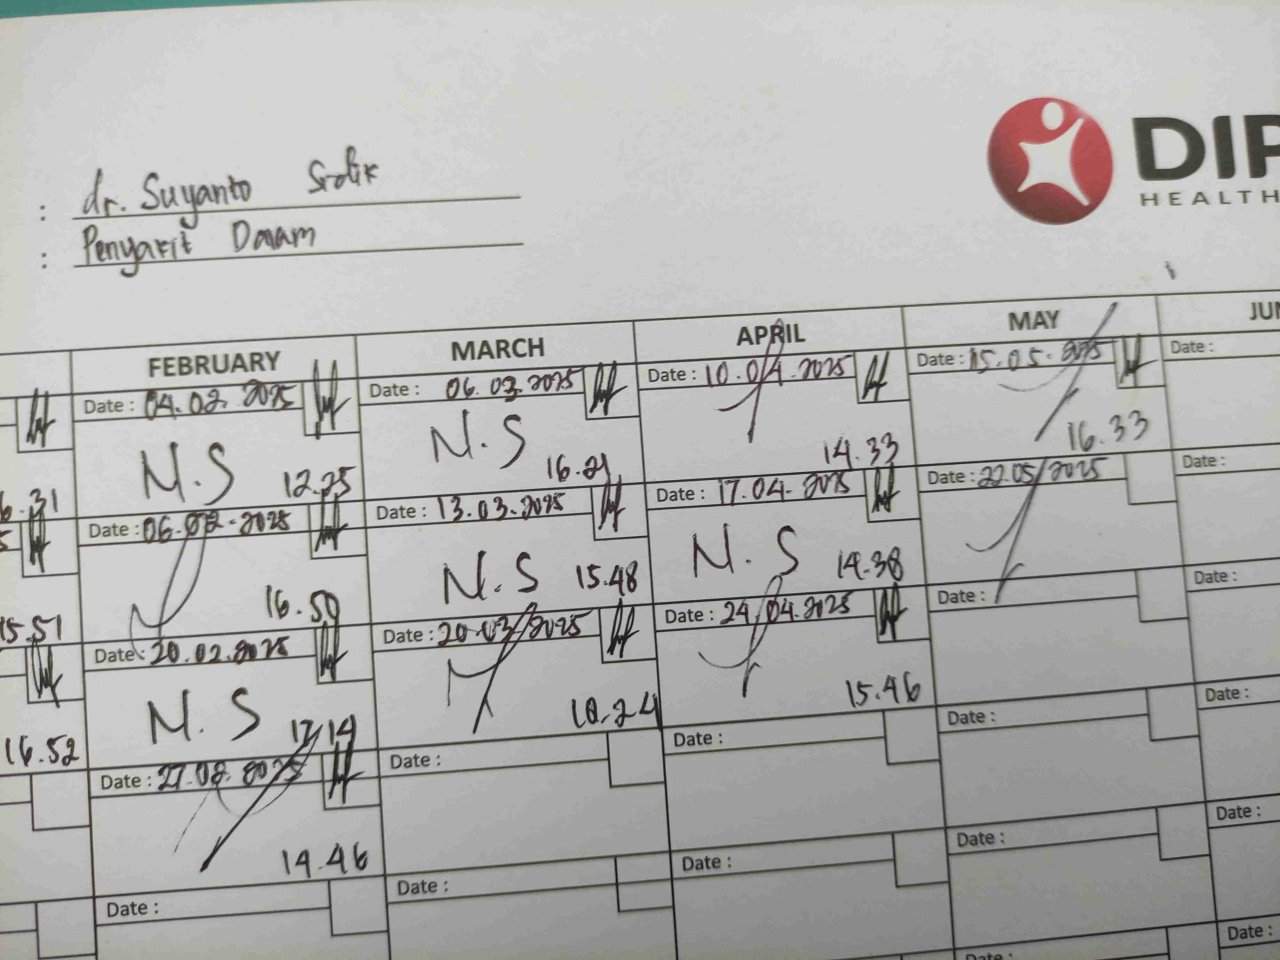 dr. Suyanto Sidik
: Penyakit Dalam
DIP
HEALTH
FEBRUARY MARCH APRIL MAY JUN
Date : 04.02.2025 Date : 06.03.2025 Date : 10.04.2025 Date : 15.05.2025 Date :
N.S 12.25 N.S 16.21 14.33 16.33
6.31
Date : 06.02.2025 Date : 13.03.2025 Date : 17.04.2025 Date : 22.05.2025 Date :
16.50 N.S 15.48 N.S 14.38
15.51
Date : 20.02.2025 Date : 20.03.2025 Date : 24.04.2025 Date : Date :
N.S 17.14 18.24 15.46
16.52
Date : 27.02.2025 Date : Date : Date : Date :
14.46
Date : Date : Date : Date : Date :
Date : Date :